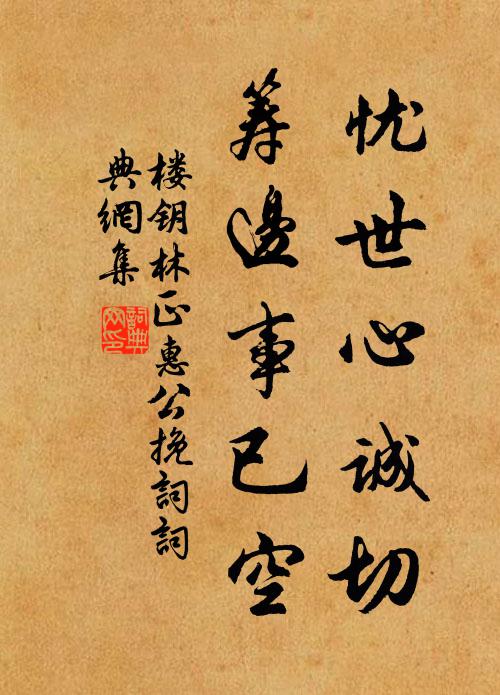 忧世心诚切
筹边事已空
楼钥林正惠公挽词词
典網集
詞典網印